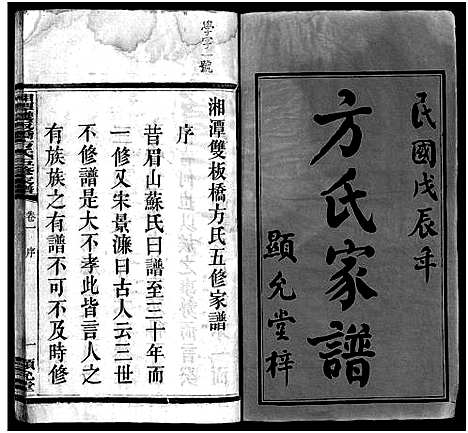 民國戊辰年
方氏家譜
顯允堂梓
學字一號
湘潭雙板橋方氏五修家譜
序
昔眉山蘇氏曰譜至三十年而
一修又朱景濂曰古人云三世
不修譜是大不孝此皆言人之
有族族之有譜不可不及時修
湘潭雙板橋方氏五修家譜
卷一
序
一
顯允堂